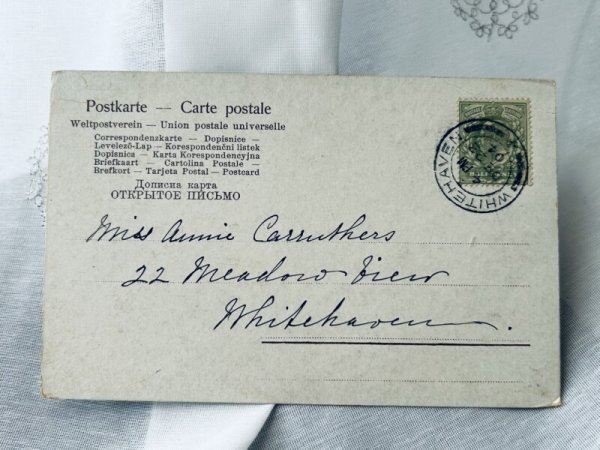 Postkarte — Carte postale
Weltpostverein — Union postale universelle
Correspondenzkarte — Dopisnice —
Levelező-Lap — Korespondenční listek
Dopisnica — Karta Korespondencyjna
Briefkaart — Cartolina Postale —
Brefkort — Tarjeta Postal — Postcard
Дописна карта
ОТКРЫТОЕ ПИСЬМО
WHITEHAVEN
Miss Annie Carruthers
22 Meadow View
Whitehaven.